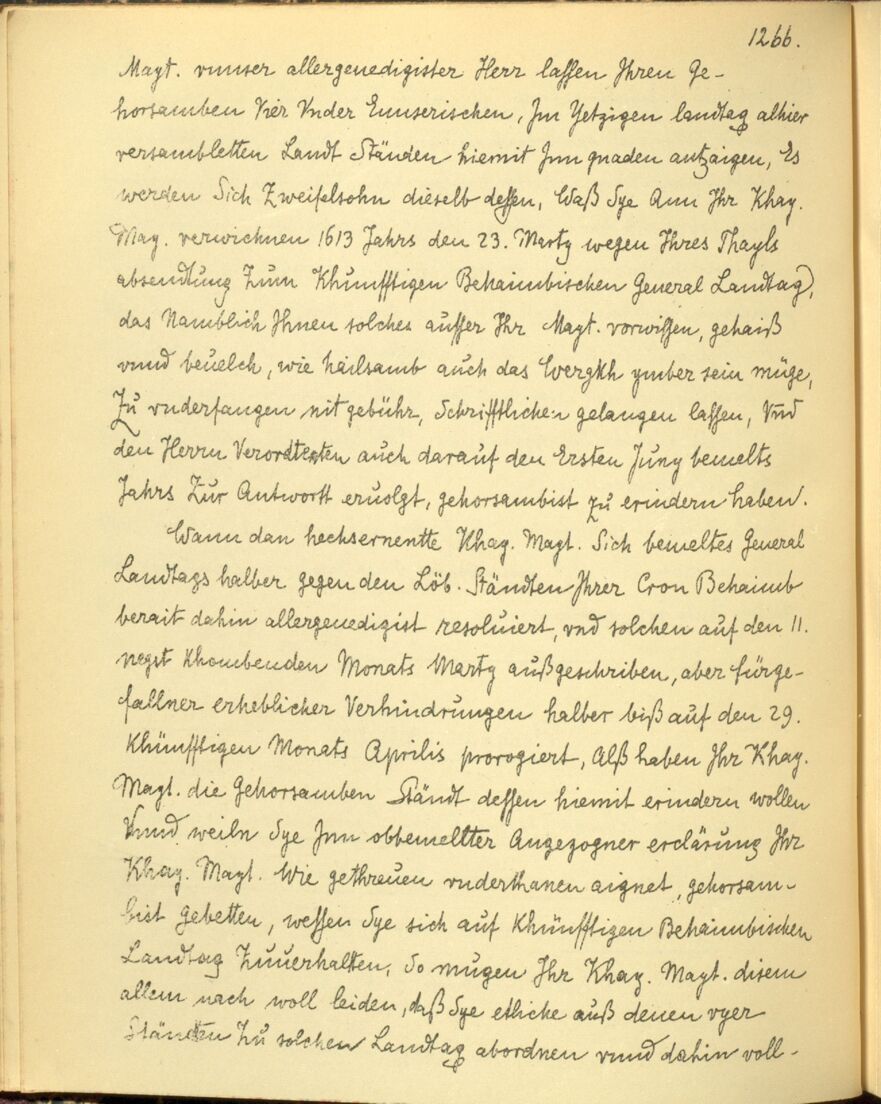 1266.
Mayt. vnnser allergenedigister Herr lassen Ihren Ge-
horsamben Vier Vnder Ennserischen, Jm Yetzigen landtag alhier
versambletten Landt Ständen hiemit Jnn gnaden antzaigen, Es
werden Sich Zweifelsohn dieselb dessen, Waß Sye Ann Ihr Khay.
May. verwichnen 1613 Jahrs den 23. Marty wegen Ihres Thayls
absendtung Zum Khünfftigen Behaimbischen General Landtag),
das Namblich Ihnen solches ausser Ihr Mayt. vorwissen, gehaiß
vnnd beuelch, wie hailsamb auch das Wergkh ymber sein müge,
Zu vnderfangen nit gebühr, Schrifftlichen gelangen lassen, Vnd
den Herrn Verordtenten auch darauf den Ersten Juny bemelts
Jahrs Zur Antwortt eruolgt, gehorsambist Zu erindern haben.
Wann dan hechsternentte Khay. Mayt. Sich bemeltes General
Landtags halber gegen den Löb. Ständten Ihrer Cron Behaimb
berait dahin allergenedigist resoluiert, vnd solchen auf den 11.
negst Khombenden Monats Marty außgeschriben, aber fürge-
fallner erheblicher Verhindrungen halber biß auf den 29.
Khünfftigen Monats Aprilis prorogiert, Alß haben Ihr Khay.
Mayt. die Gehorsamben Ständt dessen hiemit erindern wollen
Vnnd weiln Sye Jnn obbemellter Angezogner erclärung Ihr
Khay. Mayt. Wie gethreuen vnderthanen aignet, gehorsam-
bist Gebetten, wessen Sye sich auf Khünfftigen Behaimbischen
Landtag Zuuerhalten, So mugen Ihr Khay. Mayt. disem
allem nach woll leiden, daß Sye etliche auß denen vyer
Ständten Zu solchen Landtag abordnen vnnd dahin voll-